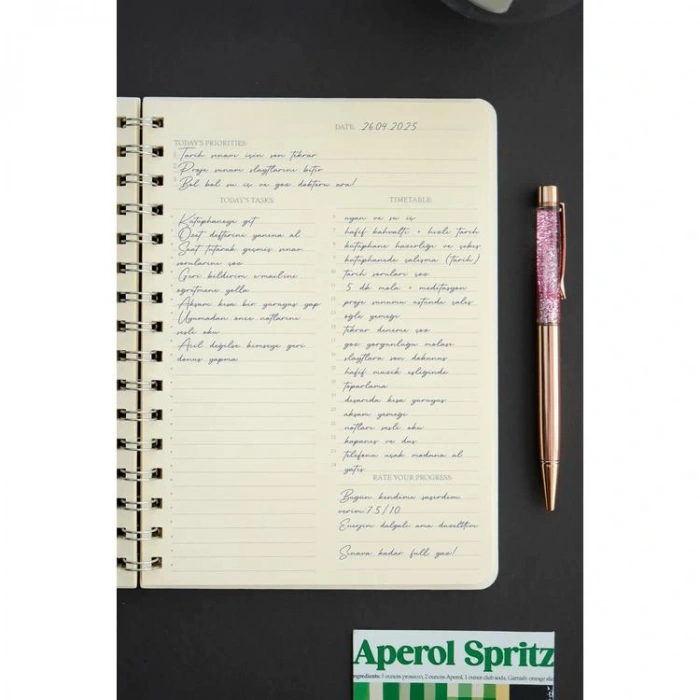 DATE: 26.04.2025
TODAY'S PRIORITIES:
1. Tarih sınavı için son tekrar
2. Proje sunum slaytlarını bitir
3. Bol bol su iç ve göz doktoru ara!
TODAY'S TASKS:
Kütüphaneye git
Özet defterini yanına al
Saat tutarak geçmiş sınav
sorularını çöz
Geri bildirim e-maili'ne
öğretmene yolla
Akşam kısa bir yürüyüş yap
Uyumadan önce notlarını
sesli oku
Acil değilse kimseye geri
dönüş yapma
TIMETABLE:
uyan ve su iç
hafif kahvaltı + hızlı tarih
kütüphane hazırlığı ve çıkış
kütüphanede çalışma (tarih)
tarih soruları çöz
5 dk mola + meditasyon
proje sunumu üstünde çalış
öğle yemeği
tekrar deneme çöz
göz yorgunluğu molası
slaytlara son dokunuş
hafif müzik eşliğinde
toparlama
dışarıda kısa yürüyüş
akşam yemeği
notları sesli oku
kapanış ve duş
telefonu uçak moduna al
yatış
RATE YOUR PROGRESS:
Bugün kendime şaşırdım
verim 7.5/10
Enerjim dalgalı ama düzelttim
Sınava kadar full gaz!
Aperol Spritz
Ingredients: 3 ounces prosecco, 2 ounces Aperol, 1 ounce club soda, Garnish: orange sli